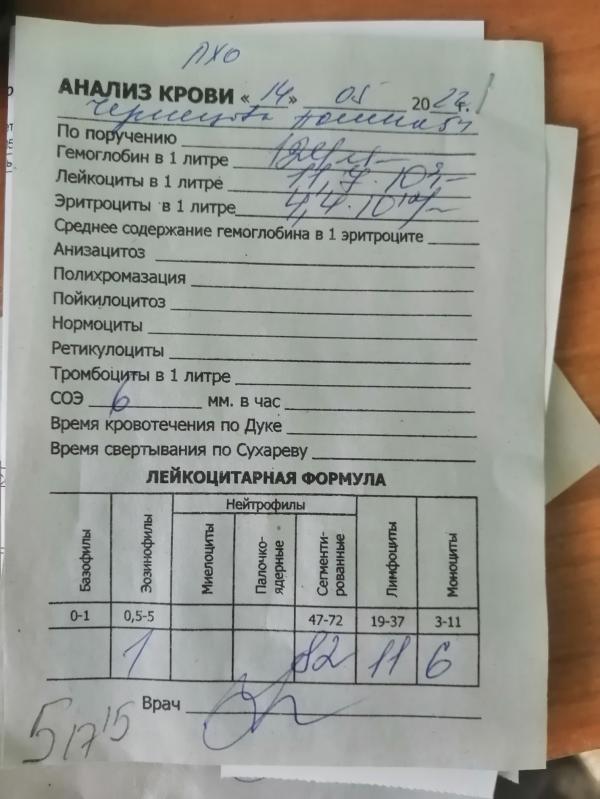 ЛХО
АНАЛИЗ КРОВИ «14» 05 2022г.
По поручению
Гемоглобин в 1 литре
Лейкоциты в 1 литре 11,7·10⁹
Эритроциты в 1 литре 4,4·10¹²
Среднее содержание гемоглобина в 1 эритроците
Анизацитоз
Полихромазация
Пойкилоцитоз
Нормоциты
Ретикулоциты
Тромбоциты в 1 литре
СОЭ 6 мм. в час
Время кровотечения по Дуке
Время свертывания по Сухареву
ЛЕЙКОЦИТАРНАЯ ФОРМУЛА
Нейтрофилы
Базофилы Эозинофилы Миелоциты Палочко-ядерные Сегменти-рованные Лимфоциты Моноциты
0-1 0,5-5 47-72 19-37 3-11
1 82 11 6
Врач